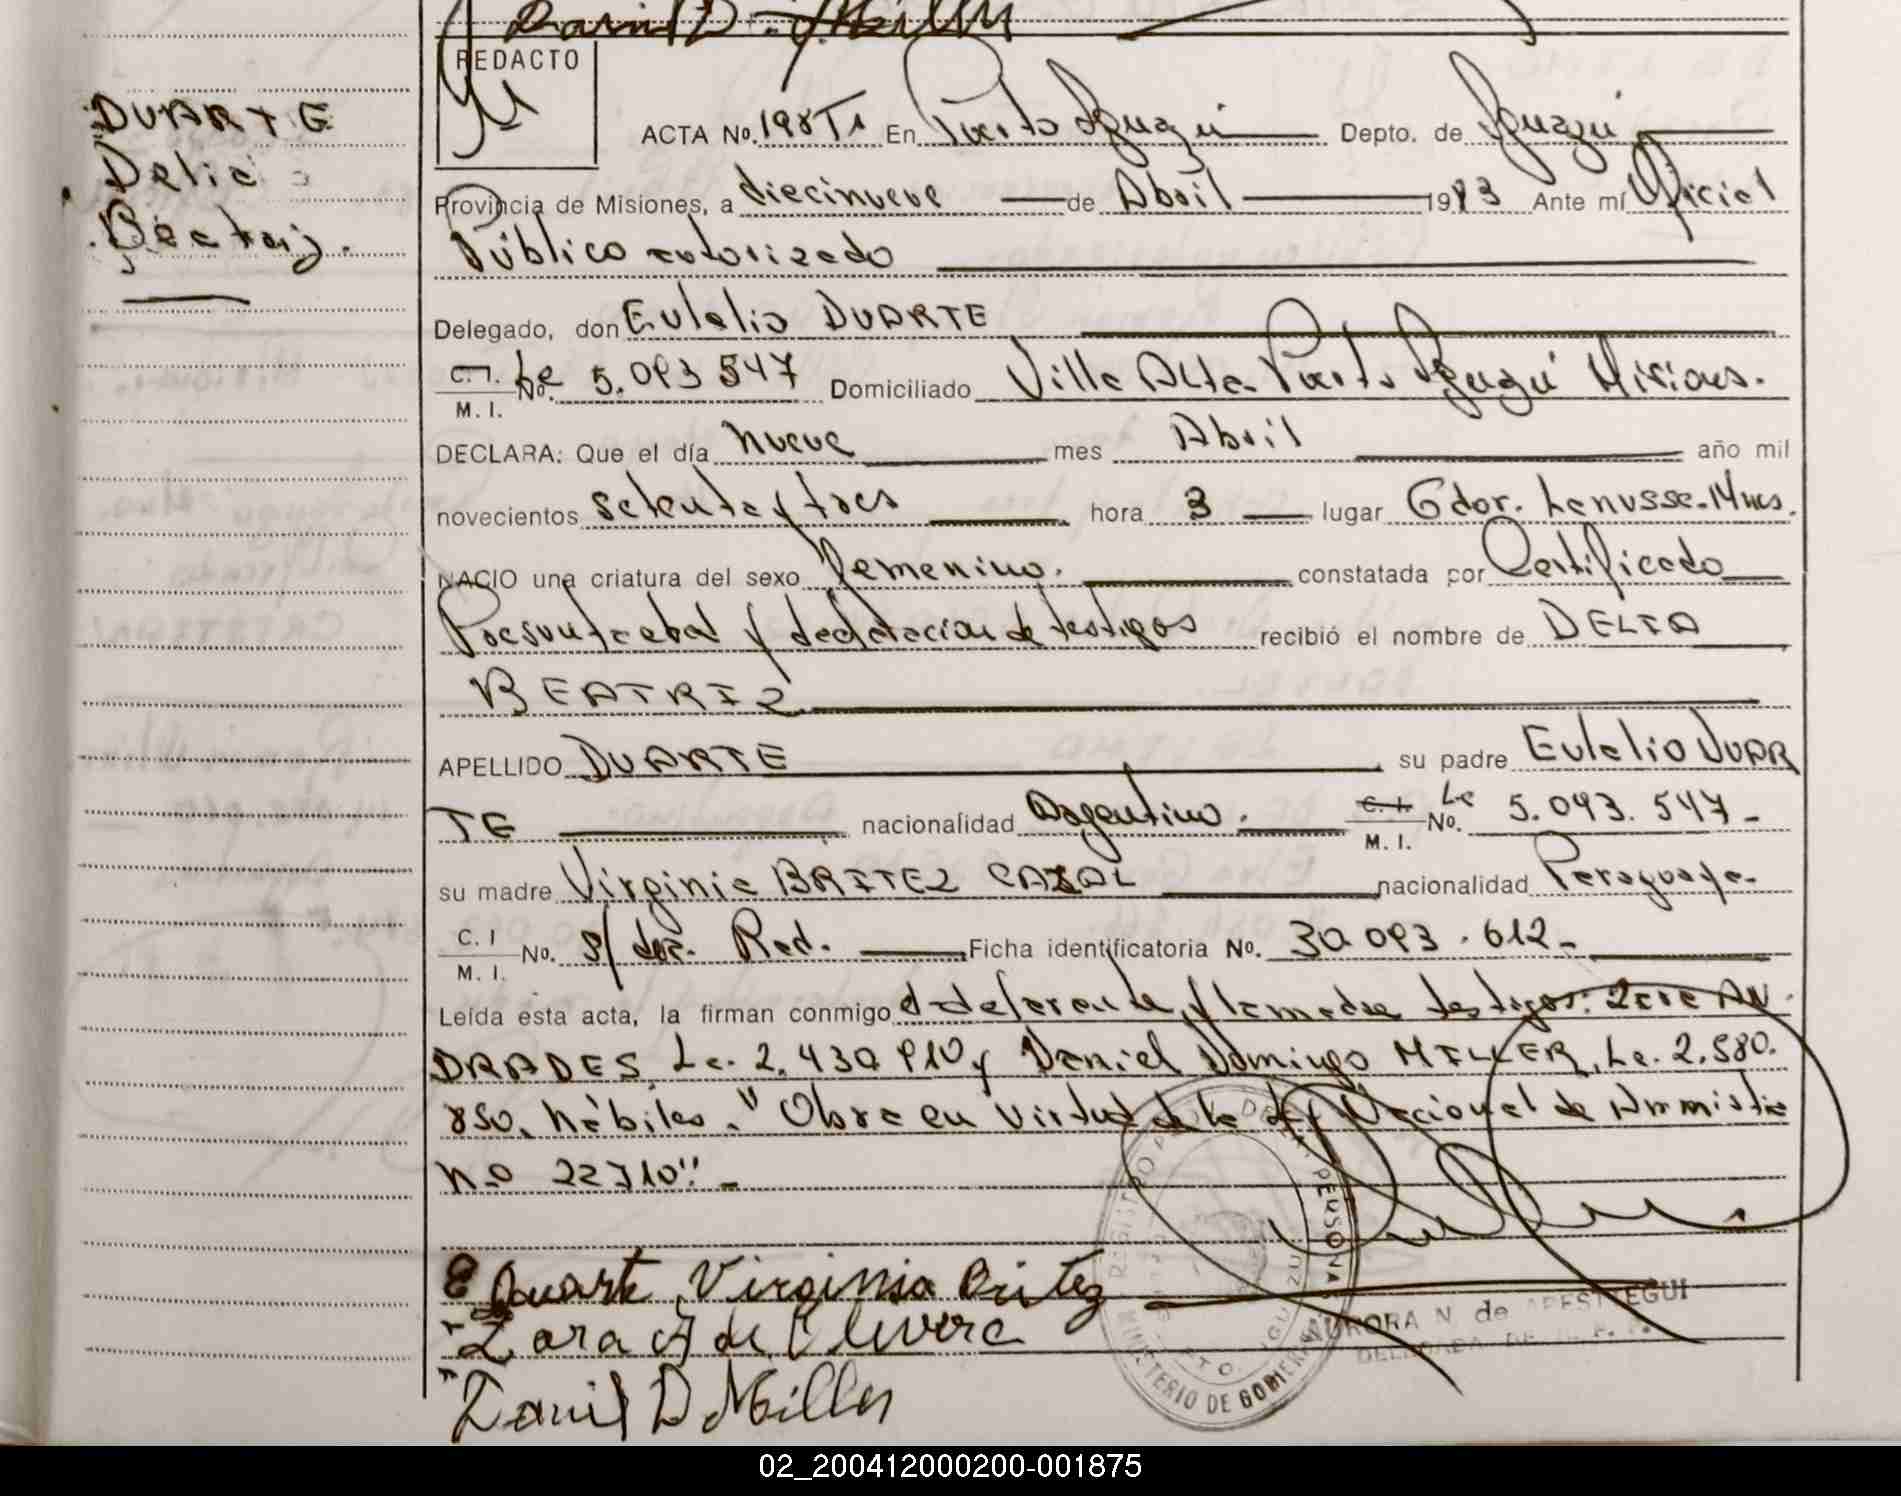 David D. Miller
REDACTO
DUARTE
Delia
Beatriz.
ACTA No. 198 T1 En Puerto Iguazú Depto. de Iguazú
Provincia de Misiones, a diecinueve de Abril 1983 Ante mí Oficial
Público autorizado
Delegado, don Eulalio DUARTE
C.I. M. I. Le No. 5.093 547 Domiciliado Villa Alta Puerto Iguazú Misiones.
DECLARA: Que el día nueve mes Abril año mil
novecientos setenta y tres hora 3 lugar Gdor. Lanusse-Mnes.
NACIO una criatura del sexo femenino. constatada por Certificado
y declaración de testigos recibió el nombre de DELIA
BEATRIZ
APELLIDO DUARTE su padre Eulalio DUAR
TE nacionalidad Argentino. C.I. M. I. Le No. 5.093.547-
su madre Virginia BRITEZ CAZAL nacionalidad Paraguaya-
C. I M. I. No. s/ doc. Rad. Ficha identificatoria No. 30 093.612-
Leída esta acta, la firman conmigo el deferente y la madre testigos: AN
DRADES, Le. 2.430 910 y Daniel Domingo MILLER, Le. 2.580.
850. hábiles. "Obra en virtud de la Ley Nacional de Amnistia
No 22710"-
E Duarte Virginia Britez
Zara A de Olivera
Daniel D Miller
REGISTRO DE LAS PERSONAS
MINISTERIO DE GOBIERNO
PTO. IGUAZU
AURORA N. de APESTEGUI
DELEGADA
02_200412000200-001875